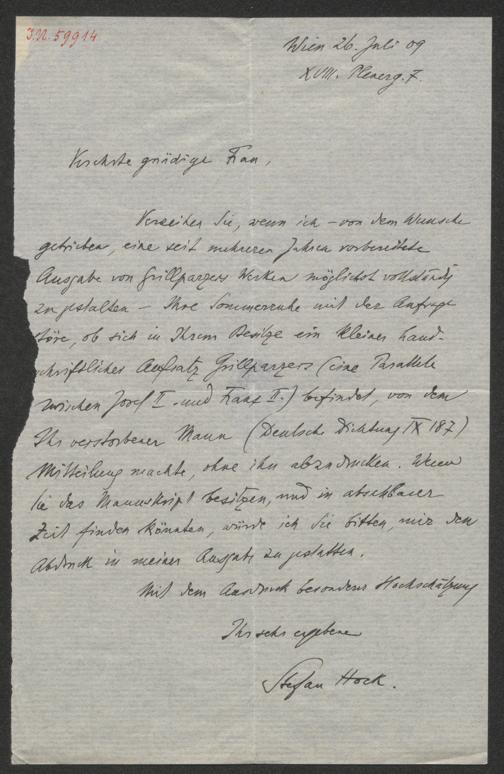 I.N. 59914
Wien 26. Juli 09
XVIII. Plenerg. 7.
Verehrte gnädige Frau,
Verzeihen Sie, wenn ich – von dem Wunsche
getrieben, eine seit mehreren Jahren vorbereitete
Ausgabe von Grillparzers Werken möglichst vollständig
zu gestalten – Ihre Sommerruhe mit der Anfrage
störe, ob sich in Ihrem Besitze ein kleiner hand-
schriftlicher Aufsatz Grillparzers (eine Parallele
zwischen Josef II. und Franz II.) befindet, von dem
Ihr verstorbener Mann (Deutsche Dichtung IX 187)
Mitteilung machte, ohne ihn abzudrucken. Wenn
Sie das Manuskript besitzen, und in absehbarer
Zeit finden könnten, würde ich Sie bitten, mir den
Abdruck in meiner Ausgabe zu gestatten.
Mit dem Ausdruck besonderer Hochschätzung
Ihr sehr ergebener
Stefan Hock.